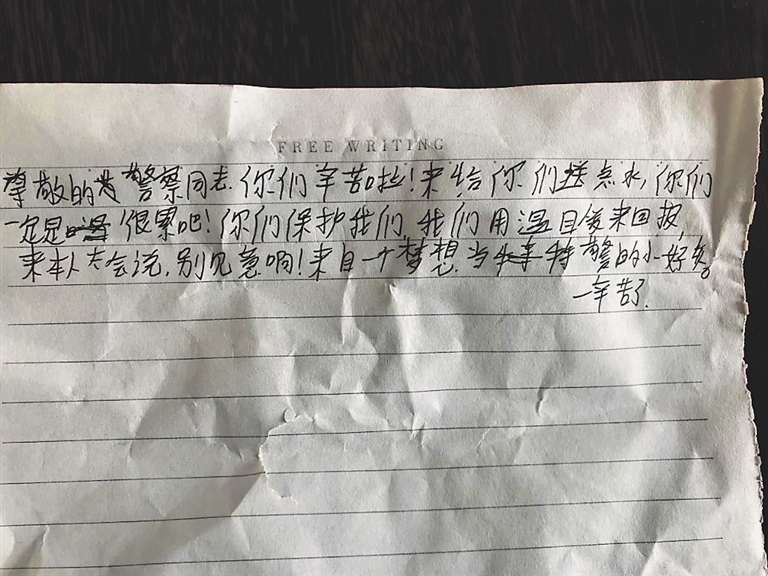 FREE WRITING
尊敬的警察同志.你们辛苦拉!来给你们送点水,你们
一定是很累吧!你们保护我们,我们用温来回报,
来本人会说,别见意响!来自一个梦想当特警的小
辛苦了.